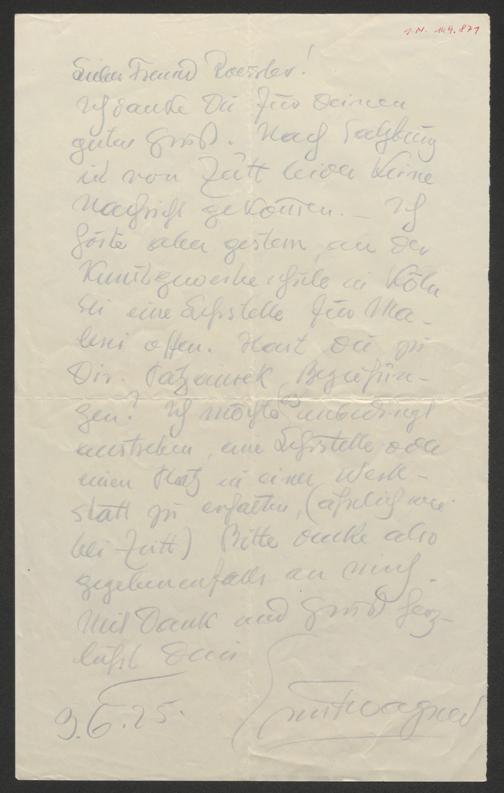 J.N. 149.871
Lieber Freund Roessler!
Ich danke Dir für Deinen
guten Gruß. Nach Salzburg
ist von Zütt leider keine
Nachricht gekommen. – Ich
hörte aber gestern, an der
Kunstgewerbeschule in Köln
sei eine Lehrstelle für Ma-
lerei offen. Hast Du zu
Dir. Pazaurek Beziehun-
gen? Ich möchte es unbedingt
anstreben, eine Lehrstelle oder
einen Platz in einer Werk-
statt zu erhalten, (ähnlich wie
bei Zütt) Bitte denke also
gegebenenfalls an mich.
Mit Dank und Gruß herz-
lichst Dein
9.6.25. Ernst Wagner